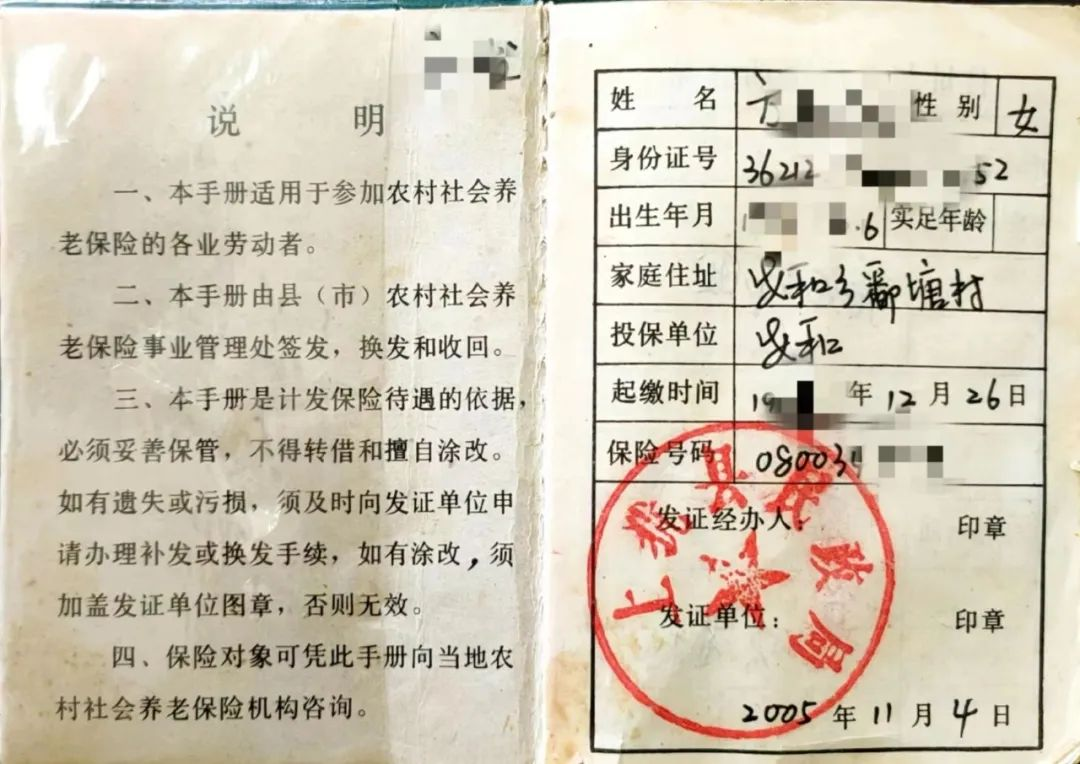 说 明
一、本手册适用于参加农村社会养
老保险的各业劳动者。
二、本手册由县（市）农村社会养
老保险事业管理处签发，换发和收回。
三、本手册是计发保险待遇的依据，
必须妥善保管，不得转借和擅自涂改。
如有遗失或污损，须及时向发证单位申
请办理补发或换发手续，如有涂改，须
加盖发证单位图章，否则无效。
四、保险对象可凭此手册向当地农
村社会养老保险机构咨询。
姓 名 性别 女
身份证号 36212 52
出生年月 1 .6 实足年龄
家庭住址 安和乡鄱塘村
投保单位 安和
起缴时间 19 年 12 月 26 日
保险号码 08003
发证经办人： 印章
发证单位： 印章
上犹县民政局
2005 年 11 月 4 日